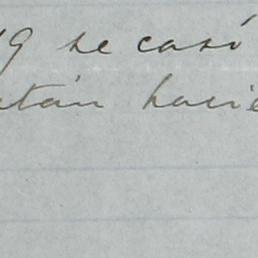 19 se casó
atán havie